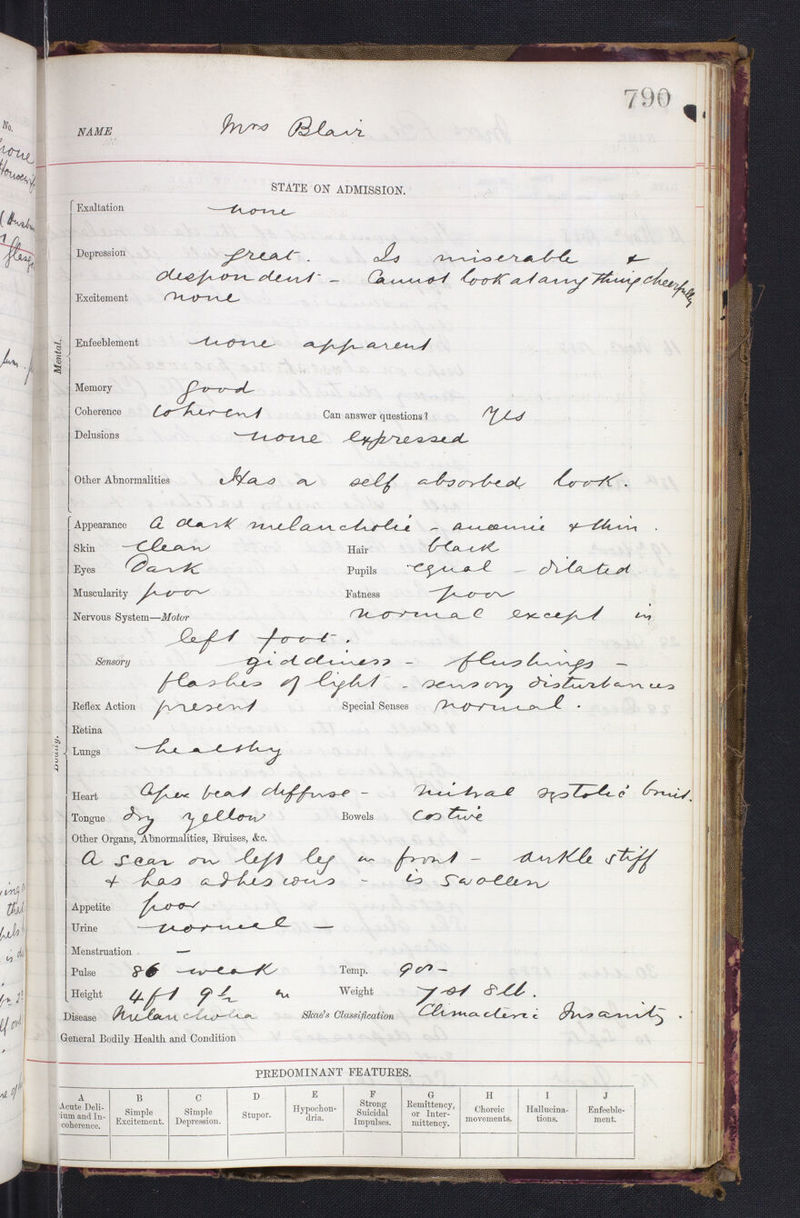 790
NAME Mrs Blair
STATE ON ADMISSION.
Mental.
Exaltation none
Depression great. Is miserable &
despondent - Cannot look at any thing cheerfully
Excitement none
Enfeeblement none apparent
Memory good
Coherence Coherent Can answer questions? Yes
Delusions none expressed
Other Abnormalities Has a self absorbed look.
Bodily.
Appearance A dark melancholic - anæmic & thin.
Skin Clean Hair black
Eyes Dark Pupils equal - dilated
Muscularity poor Fatness poor
Nervous System—Motor normal except in
left foot.
Sensory giddiness - flushings -
flashes of light - sensory disturbances
Reflex Action present Special Senses normal.
Retina
Lungs healthy
Heart Apex beat diffuse - mitral systolic bruit.
Tongue dry yellow Bowels costive
Other Organs, Abnormalities, Bruises, &c.
A scar on left leg in front - ankle stiff
& has adhesions - is swollen
Appetite poor
Urine normal -
Menstruation -
Pulse 86 weak Temp.
Height 4 ft 9½ in Weight 7 st 8 lb.
Disease Melancholia Skae's Classification Climacteric Insanity.
General Bodily Health and Condition
PREDOMINANT FEATURES.
A B C D E F G H I J
Acute Delirium and Incoherence. Simple Excitement. Simple Depression. Stupor. Hypochondria. Strong Suicidal Impulses. Remittency, or Intermittency. Choreic movements. Hallucinations. Enfeeblement.